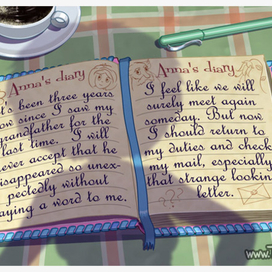 Anna's diary
It's been three years
now since I saw my
grandfather for the
last time. I will
never accept that he
disappeared so unex-
pectedly without
saying a word to me.
Anna's diary
I feel like we will
surely meet again
someday. But now
I should return to
my duties and check
my mail, especially
that strange looking
letter.
www.